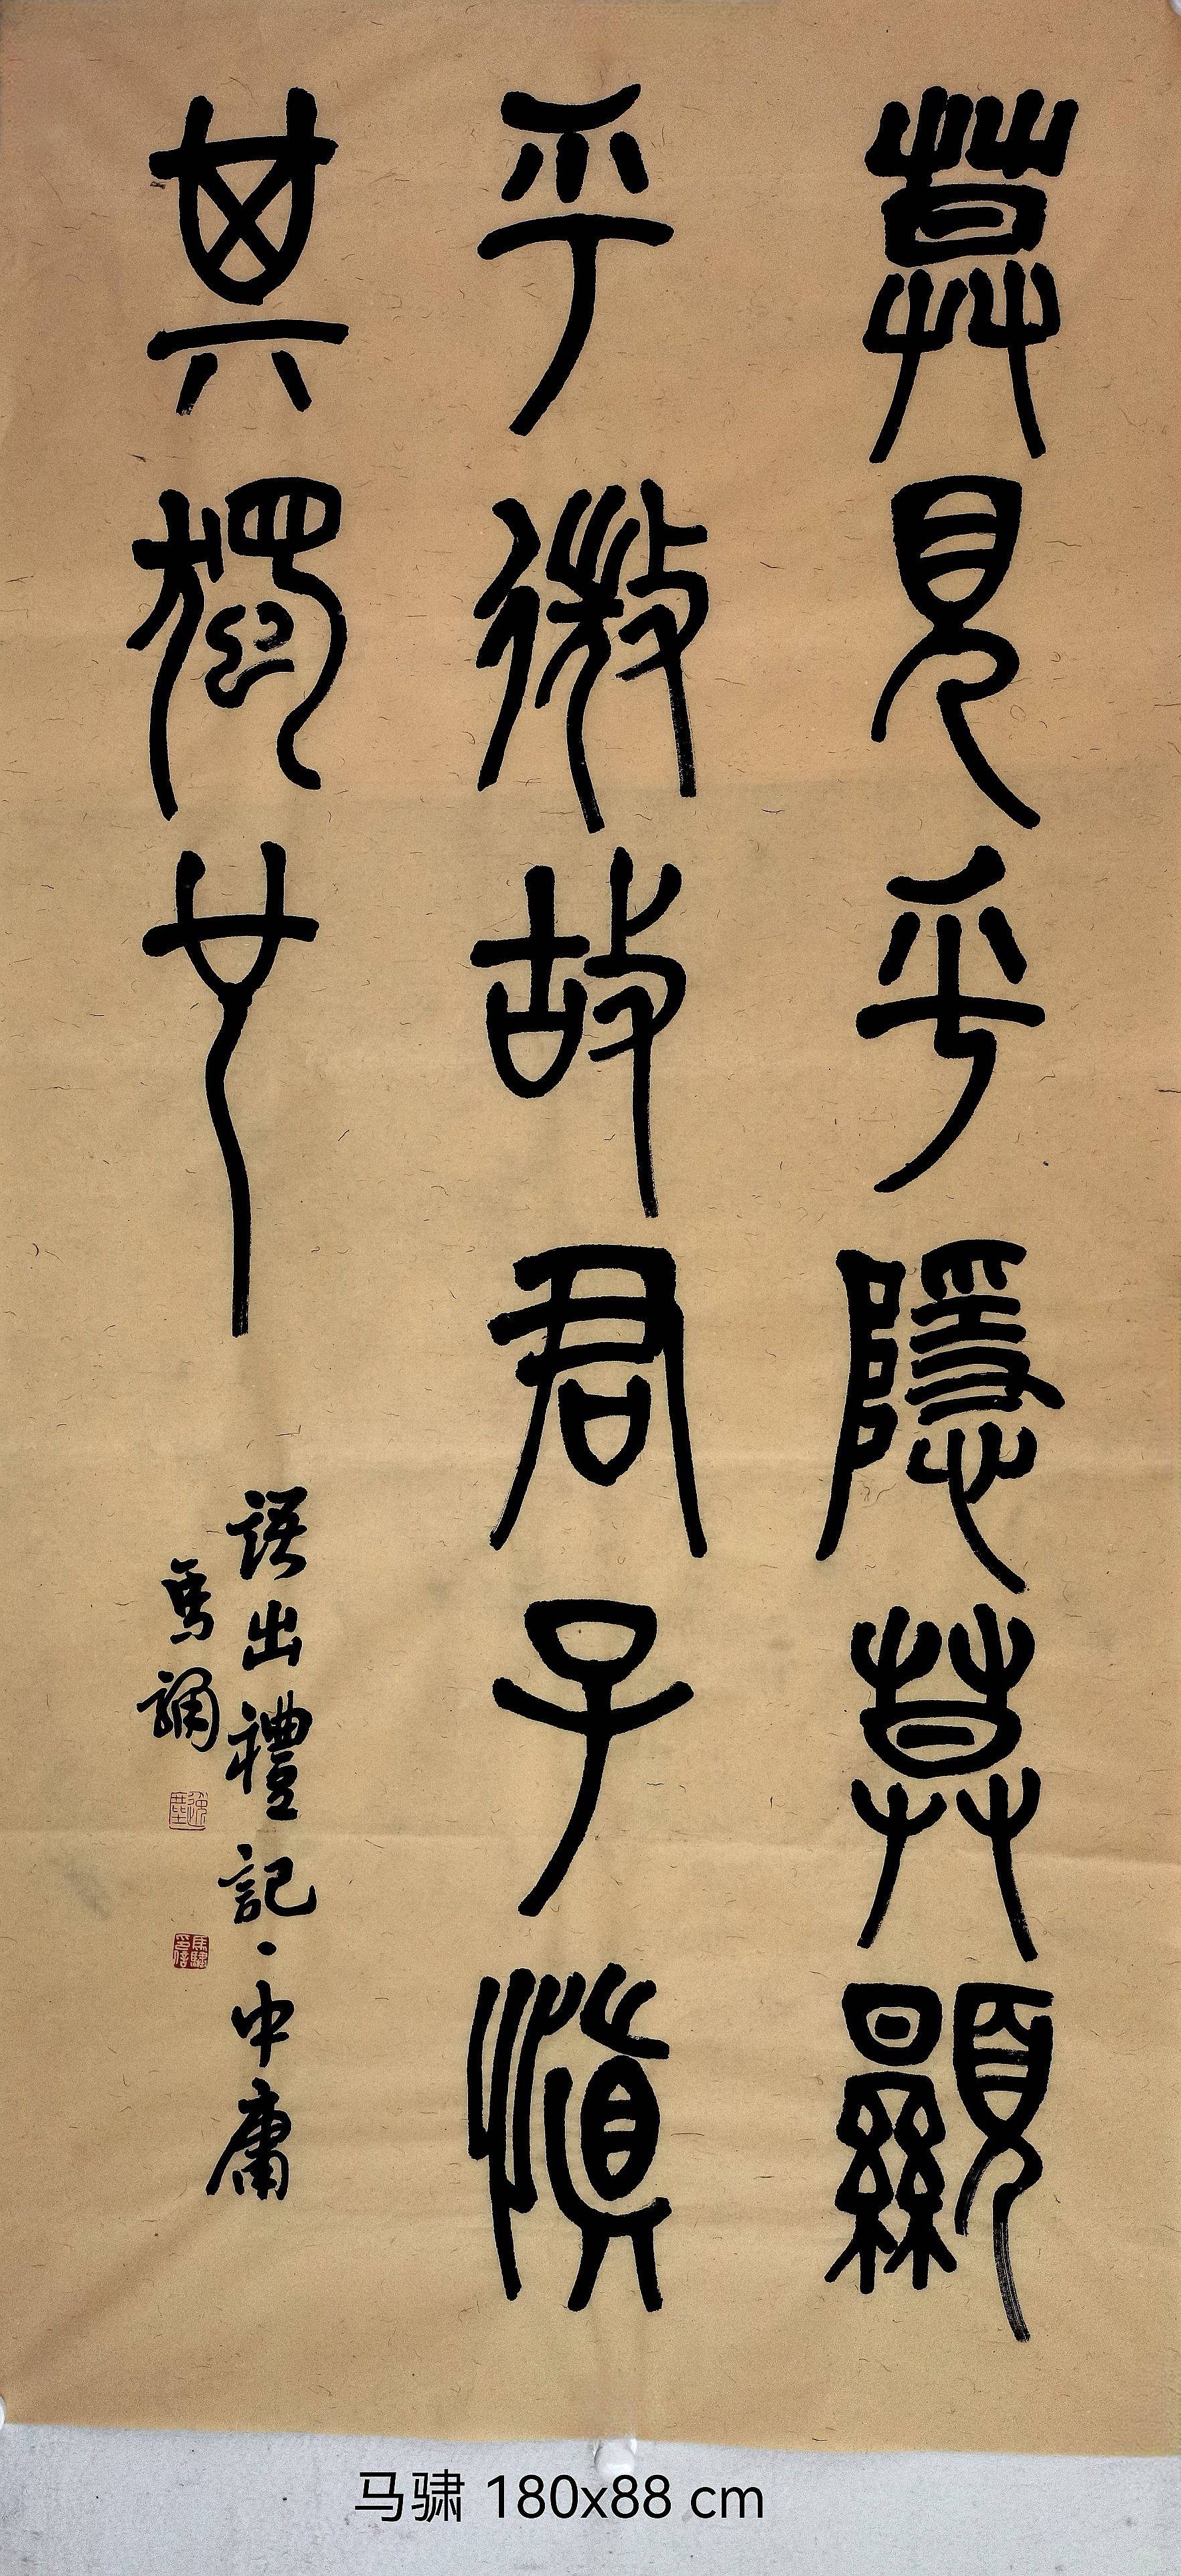 莫見乎隱莫顯
乎微故君子慎
其獨也
語出禮記·中庸
馬驌
逸塵
馬驌印信
马骕 180x88 cm